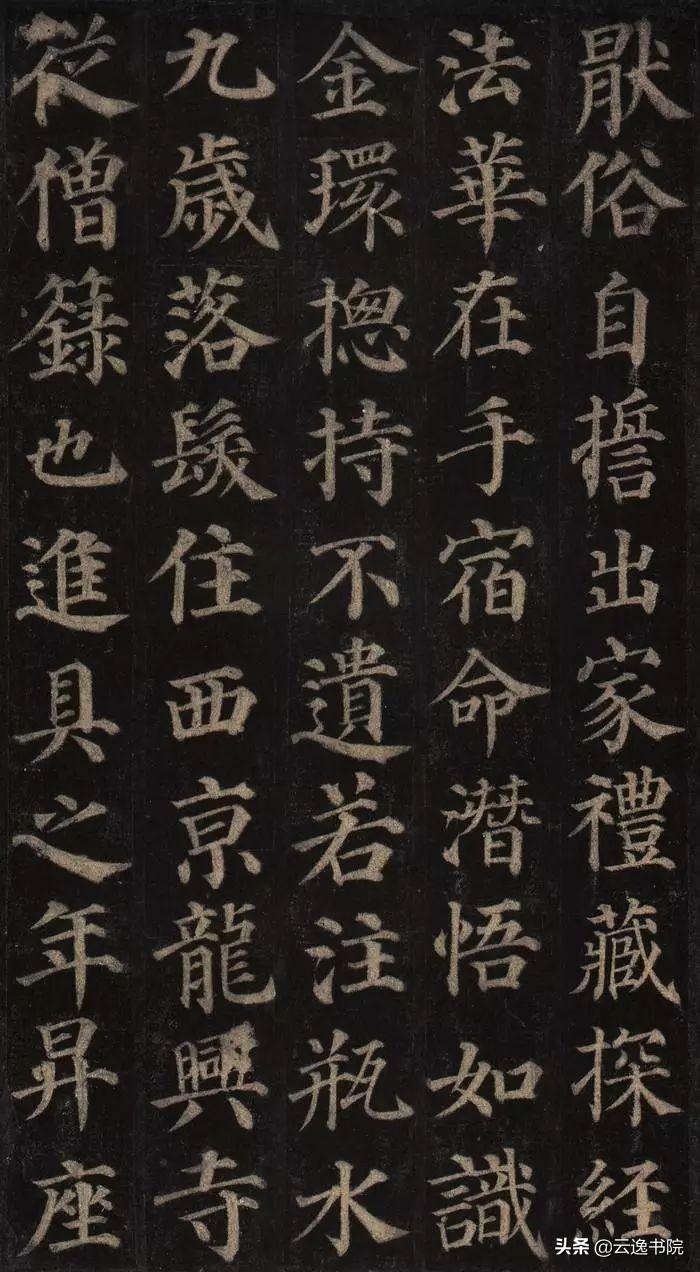 猒俗自擔出家禮藏探經
法華在手宿命潛悟如識
金環揔持不遺若注瓶水
九歲落髮住西京龍興寺
從僧籙也進具之年昇座
头条 @云逸书院